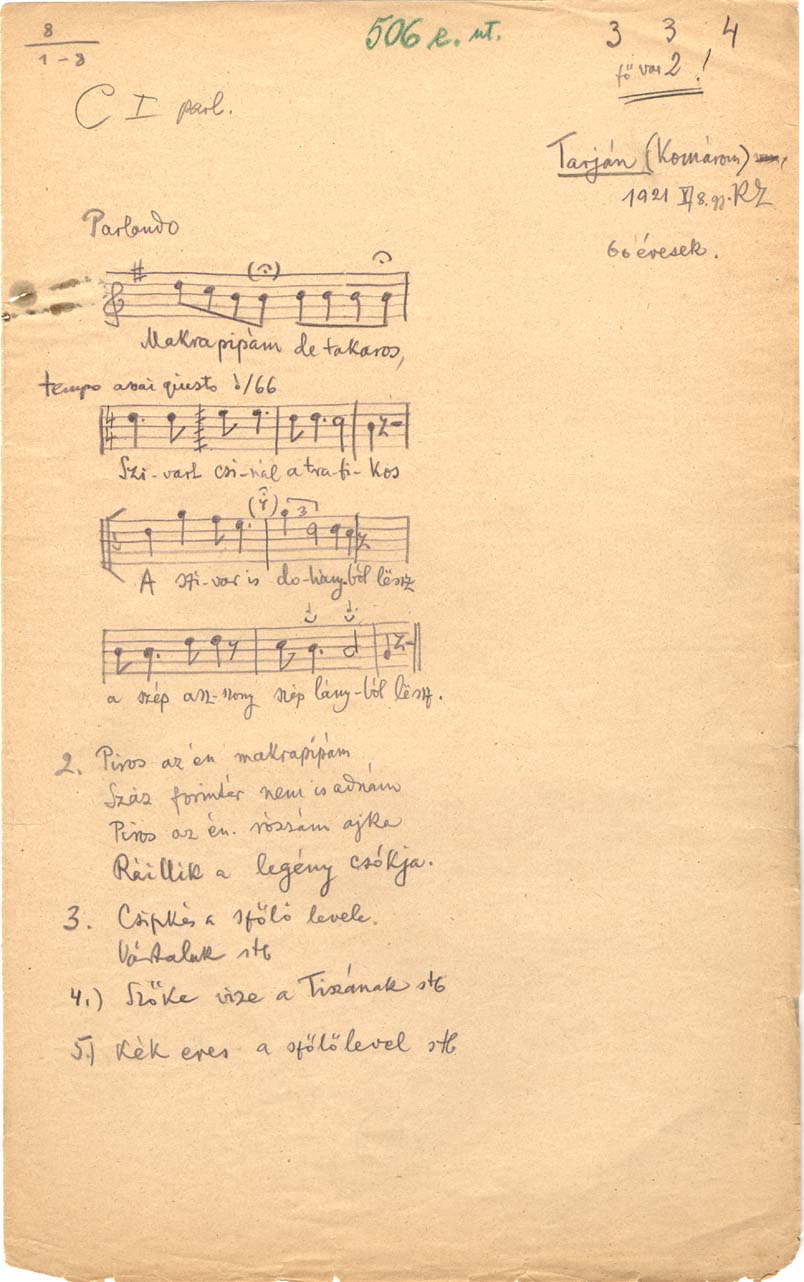 8
1 - 8
506 e. ut.
3 3 4
fő var 2 !
C I parl.
Tarján (Komárom)
1921 gy. RZ
60 évesek.
Parlando
Makrapipám de takaros,
tempo assai giusto /66
Szi-vart csi-nál a tra-fi-kos
3
A szi-var is do-hány-ból lёssz
a szép asz-szony szép lány-ból lёsz.
2. Piros az én makrapipám
Száz forintér nem is adnám
Piros az én. rózsám ajka
Ráillik a legény csókja.
3. Csipkés a szőlő levele.
stb
4.) Szőke vize a Tiszának stb
5.) Kék eres a szőlőlevel stb